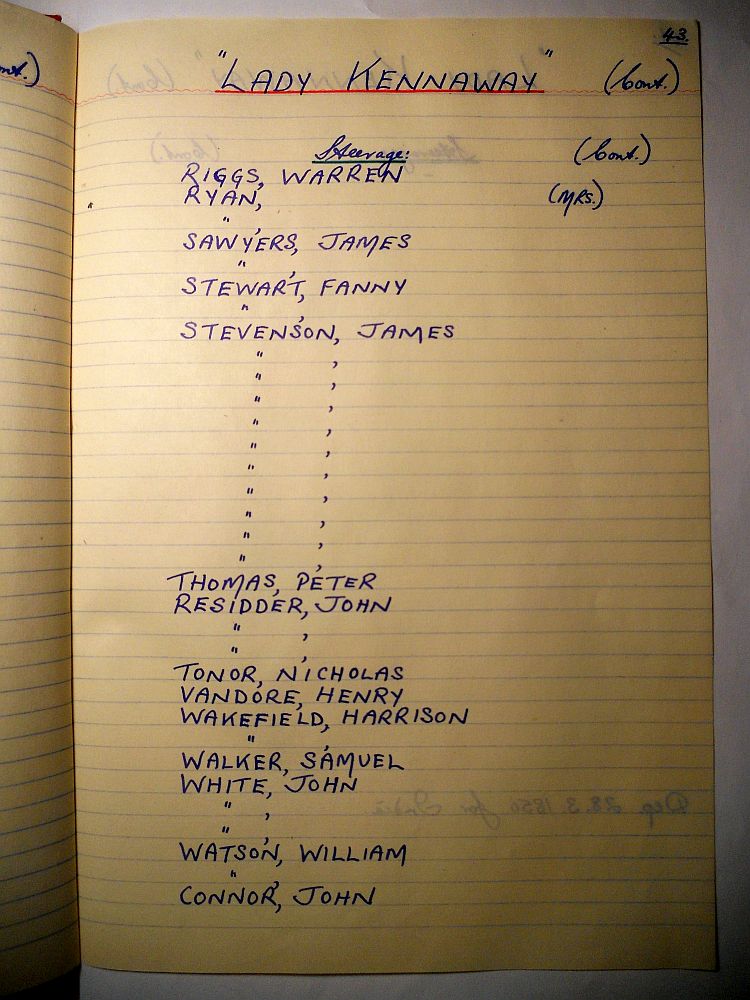 43.
ont.)
"LADY KENNAWAY" (Cont.)
Steerage: (Cont.)
RIGGS, WARREN
RYAN, (MRS.)
" ,
SAWYERS, JAMES
" ,
STEWART, FANNY
" ,
STEVENSON, JAMES
" ,
" ,
" ,
" ,
" ,
" ,
" ,
" ,
" ,
" ,
THOMAS, PETER
RESIDDER, JOHN
" ,
" ,
TONOR, NICHOLAS
VANDORE, HENRY
WAKEFIELD, HARRISON
" ,
WALKER, SAMUEL
WHITE, JOHN
" ,
" ,
WATSON, WILLIAM
" ,
CONNOR, JOHN